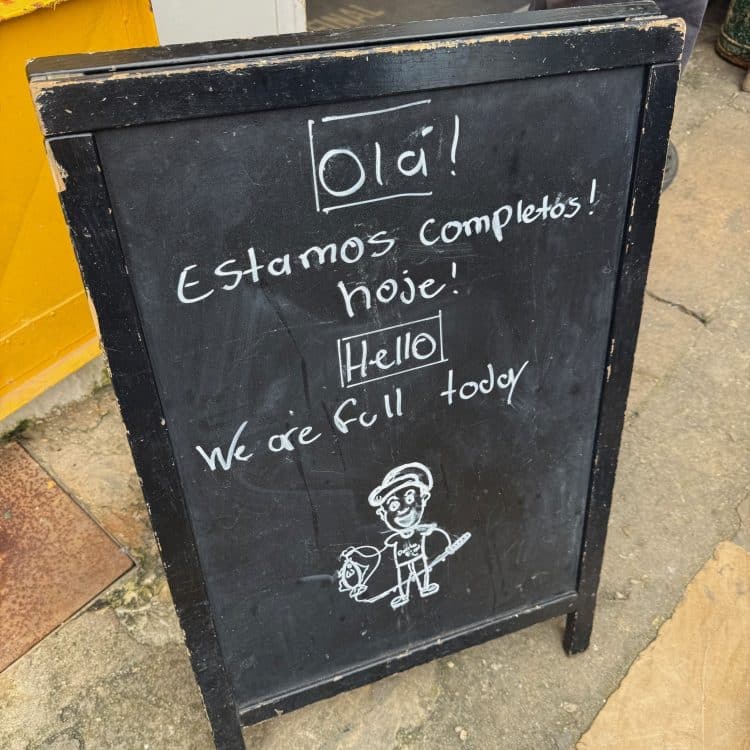 Olá!
Estamos completos!
hoje!
Hello
We are full today